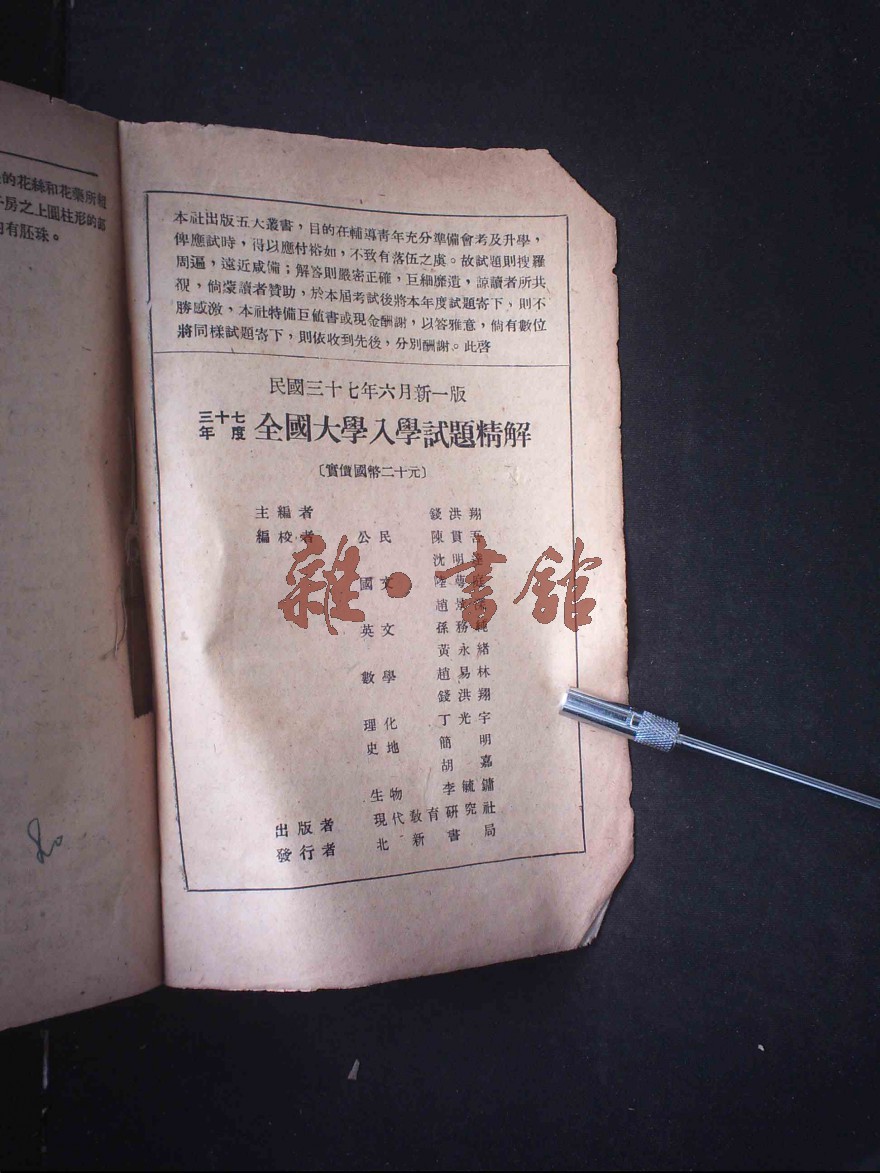 的花絲和花藥所組
房之上圓柱形的部
有胚珠。
本社出版五大叢書，目的在輔導靑年充分準備會考及升學，
俾應試時，得以應付裕如，不致有落伍之虞。故試題則搜羅
周遍，遠近咸備；解答則嚴密正確，巨細靡遺，諒讀者所共
覩，倘蒙讀者贊助，於本屆考試後將本年度試題寄下，則不
勝感激，本社特備巨値書或現金酬謝，以答雅意，倘有數位
將同樣試題寄下，則依收到先後，分別酬謝。此啓
民國三十七年六月新一版
三十七年度 全國大學入學試題精解
〔實價國幣二十元〕
主編者 錢洪翔
編校者 公民 陳貫吾
沈明達
國文 陸
趙
英文 孫務純
黃永緒
數學 趙易林
錢洪翔
理化 丁光宇
史地 簡明
胡嘉
生物 李毓鏞
出版者 現代敎育硏究社
發行者 北新書局
雜·書館
80